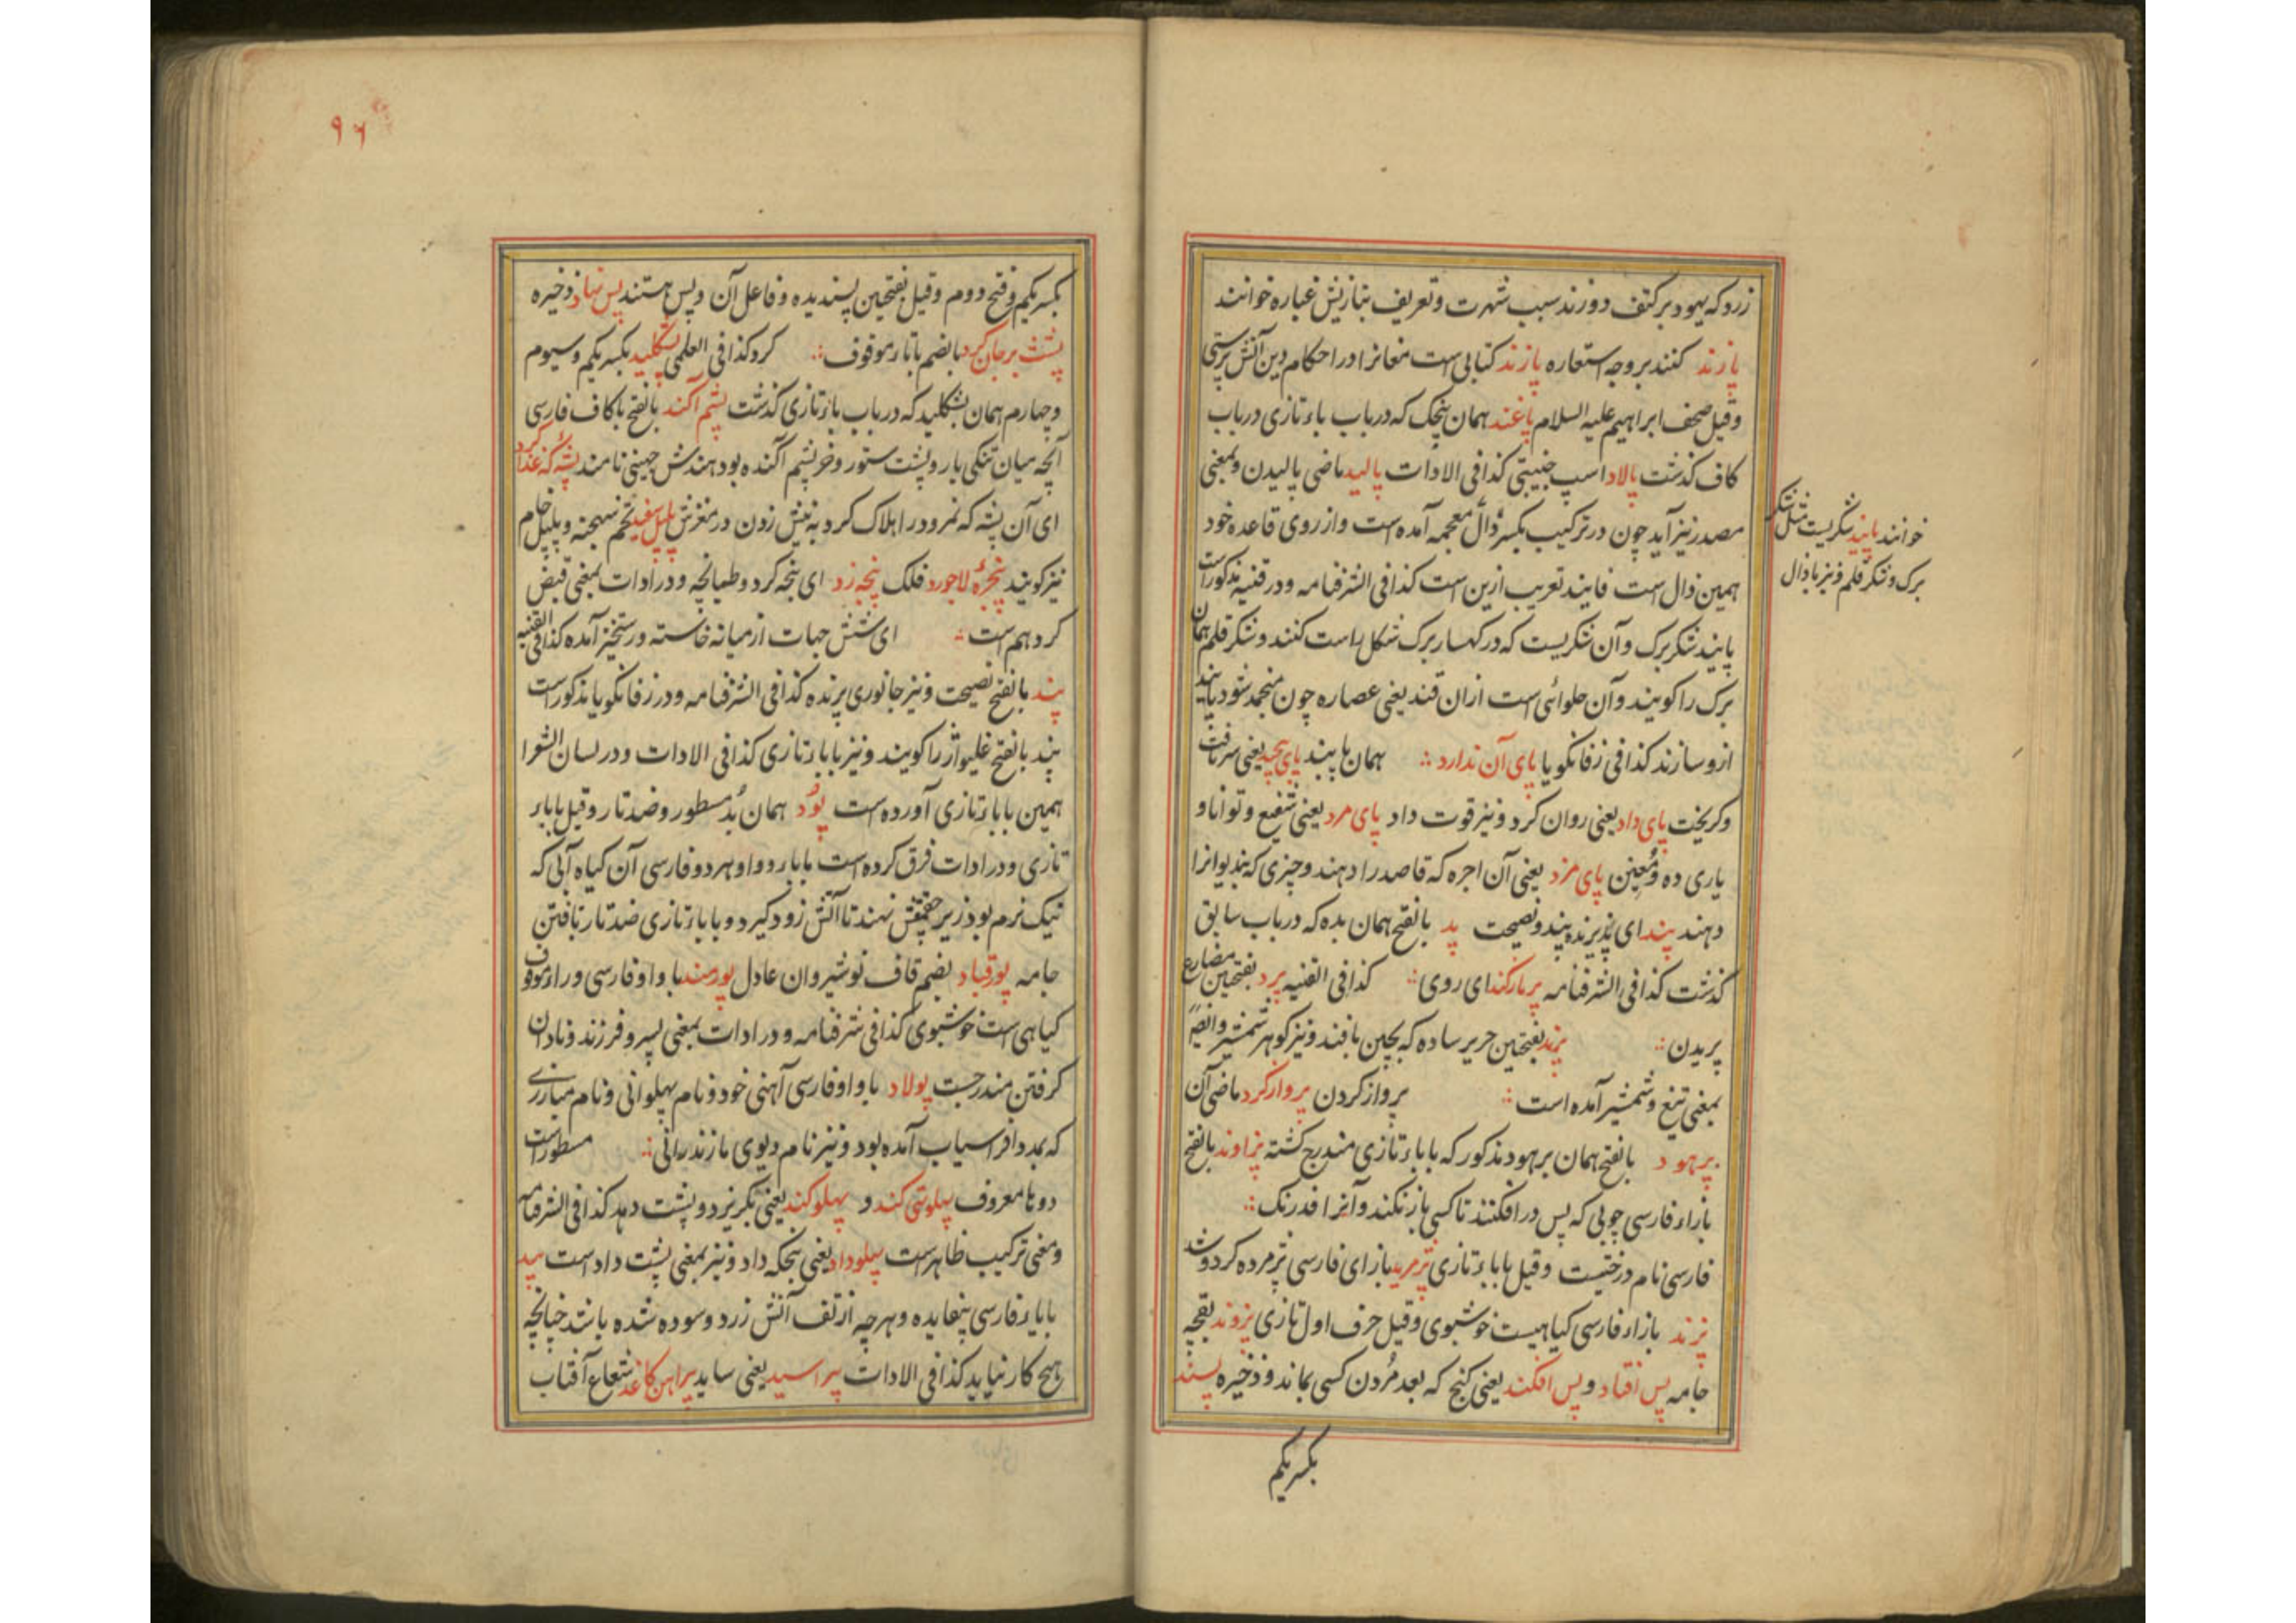 زرد که یهود بر کتف دوزند سبب شهرت و تعریف بتازیش غیاره خوانند
پازند کنند بر وجه استعاره پازند کتابی است مغانرا در احکام دین آتش پرستی
و قیل صحف ابراهیم علیه السلام پاغند همان پنجک که در باب باء تازی در باب
کاف گذشت پالاد اسپ جنیبتی کذا فی الادات پالید ماضی پالیدن و بمعنی
مصدر نیز آید چون در ترکیب بکسر دال معجمه آمده است و از روی قاعده خود
همین ذال است فانیذ تعریب ازین است کذا فی الشرفنامه و در قنیه مذکور است
پانید شکر برک و آن شکریست که در کهسار برک شکل راست کنند و شکر قلم همان
برک را کویند و آن حلوائی است ازان قند یعنی عصاره چون منجمد شود پانید
ازو سازند کذا فی زفانکویا پای آن ندارد همان پایند پای پیچید یعنی سر تافت
و کریخت پای داد یعنی روان کرد و نیز قوت داد پای مرد یعنی شفیع و توانا و
یاری ده و معین پای مزد یعنی آن اجره که قاصد را دهند و چیزی که بدیوانرا
دهند پند ای پذیرنده پند و نصیحت پد بالفتح همان بده که در باب سابق
گذشت کذا فی الشرفنامه پرمارکند ای روی کذا فی القنیه پرد بفتحین مضارع
پریدن پرند بفتحین حریر ساده که بچین بافند و نیز کوهر شمشیر و ایضا
بمعنی تیغ و شمشیر آمده است پرواز کردن پرواز کرد ماضی آن
پرهود بالفتح همان برهود مذکور که باباء تازی مندرج کشته پژاوند بالفتح
بازاء فارسی چوبی که پس در افکنند تا کسی باز نکند و آنرا فدرنک
فارسی نام درختیست و قیل باباء تازی پژمرید بازای فارسی پژمرده کرد و شد
پژند بازاء فارسی کیاهیست خوشبوی و قیل حرف اول تازی پژوند بقچه
جامه پس افتاد و پس افکند یعنی کنج که بعد مردن کسی بماند و ذخیره پسند
بکسر یکم
خوانند پانید شکریست شکر
برک و شکر قلم و نیز با دال
۹۶
بکسر یکم و فتح دوم و قیل بفتحین پسندیده و فاعل آن و پس هستند پس نهاد ذخیره
پشت بر جان کرد بالضم باتاء موقوف کرد کذا فی العلمی پشکلید بکسر یکم و سیوم
و چهارم همان بشکلید که در باب باء تازی گذشت پشم آکند بالفتح باکاف فارسی
آنچه میان تنکی بار و پشت ستور و خر پشم آکنده بود هندش جهینی نامند پشه که غذا کرد
ای آن پشه که نمرود را هلاک کرد به نیش زدن در مغزش پلپل سفید تخم بنجه و پلپل خام
نیز کویند پنجرهٔ لاجورد فلک پنجه زد ای پنجه کرد و طپانچه و در ادات بمعنی قبض
کرد هم است ای شش جهات از میانه خاسته و رستخیز آمده کذا فی القنیه
پند بالفتح نصیحت و نیز جانوری پرنده کذا فی الشرفنامه و در زفانکویا مذکور است
پند بالفتح غلیواژ را کویند و نیز باباء تازی کذا فی الادات و در لسان الشعرا
همین باباء تازی آورده است پود همان بد مسطور و ضد تار و قیل باباء
تازی و در ادات فرق کرده است بابا رو و او بهر دو فارسی آن کیاه آبی که
نیک نرم بود زیر چقمقش نهند تا آتش زود کیرد و باباء تازی ضد تار بافتن
جامه پورقباد بضم قاف نوشیروان عادل پورمند باواو فارسی و راء موقوف
کیاهی است خوشبوی کذا فی شرفنامه و در ادات بمعنی پسر و فرزند و نادان
کرفتن مندرجست پولاد باواو فارسی آهنی خود و نام پهلوانی و نام مبارزی
که بمدد افراسیاب آمده بود و نیز نام دیوی مازندرانی مسطور است
دوتا معروف پهلو تهی کند و پهلو کند یعنی بکریزد و پشت دهد کذا فی الشرفنامه
و معنی ترکیب ظاهر است پهلو داد یعنی بنجکه داد و نیز بمعنی پشت داد است پید
بایاء فارسی بیفایده و هرچه از تف آتش زرد و سوده شده باشد چنانچه
هیچ کار نیاید کذا فی الادات پیراسید یعنی ساید پیراهن کاغذ شعاع آفتاب